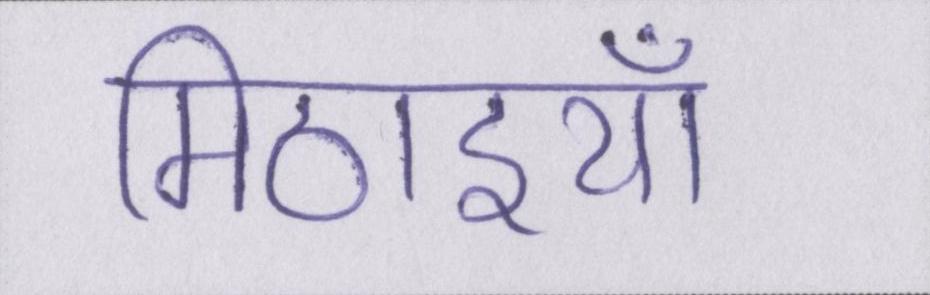 मिठाइयाँ